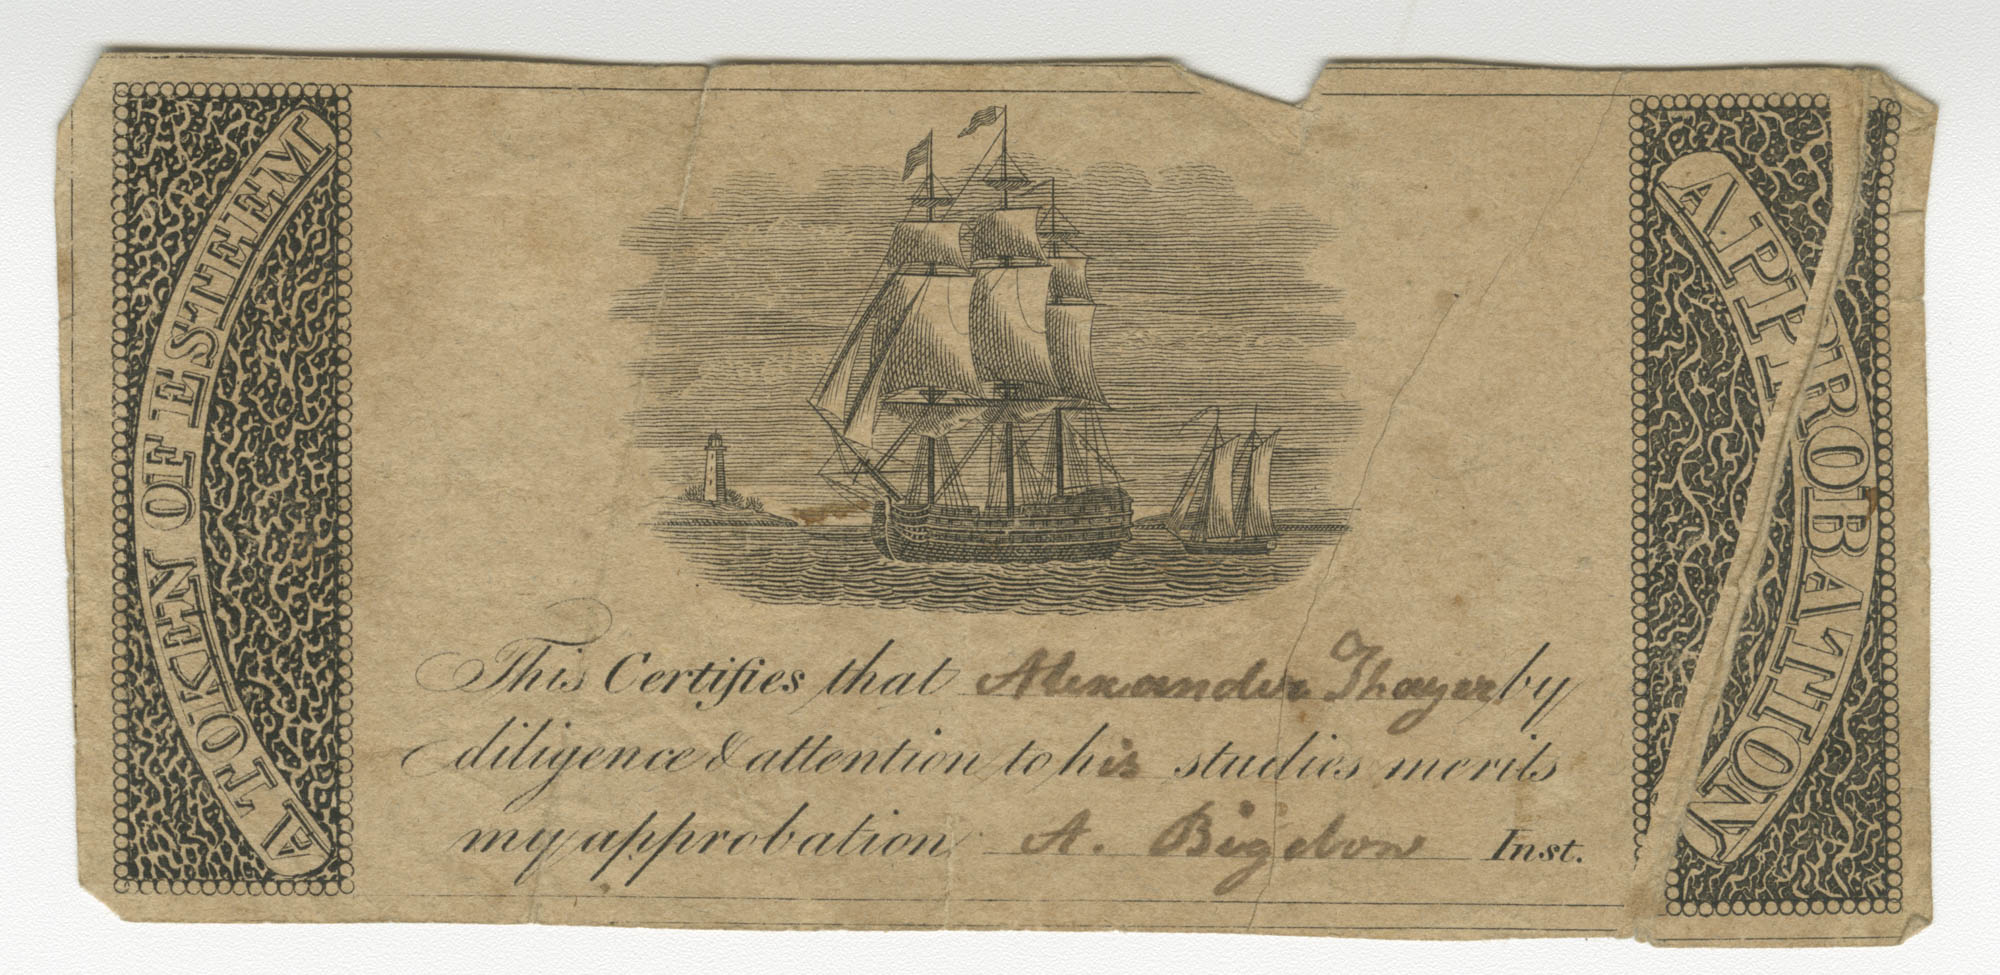 A TOKEN OF ESTEEM
APPROBATION
This Certifies that Alexander Thayer by
diligence & attention to his studies merits
my approbation A. Bigelow Inst.